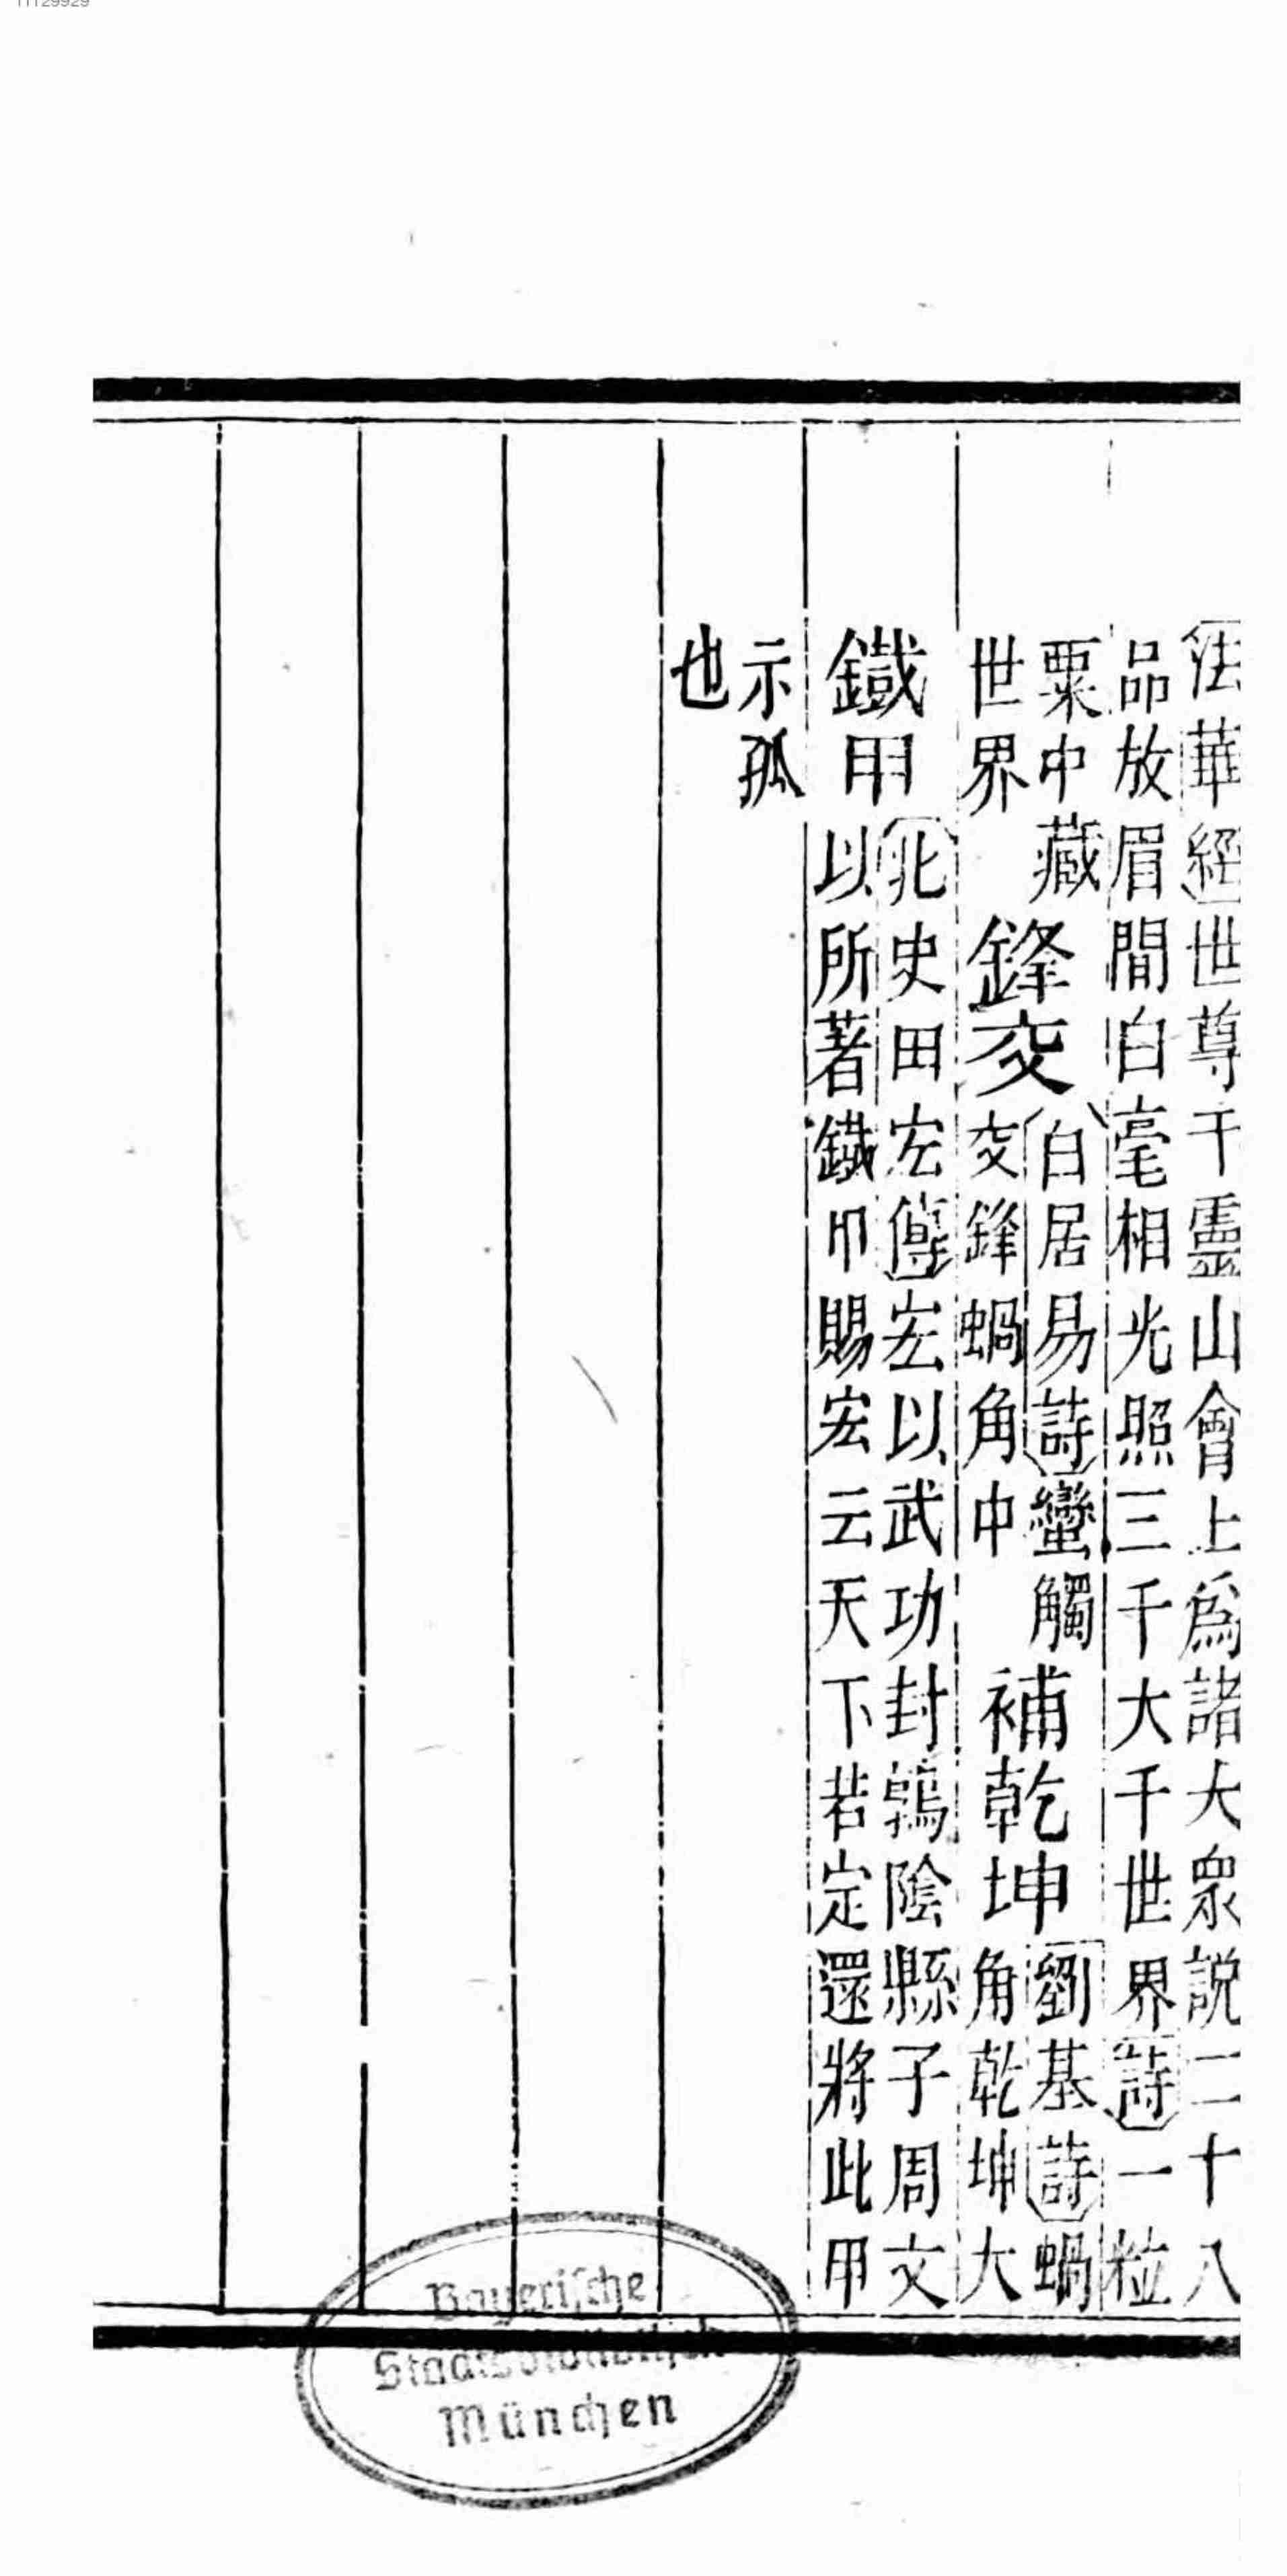 法華經世尊于靈山會上爲諸大衆説二十八
品放眉間白毫相光照三千大千世界詩一粒
粟中藏
世界
鋒交
白居易詩蠻觸
交鋒蝸角中
補乾坤
劉基詩蝸
角乾坤大
鐵甲
北史田宏傳宏以武功封鶉陰縣子周文
以所著鐵甲賜宏云天下若定還將此甲
示孤
也
Bayerische
Staatsbibliothek
München